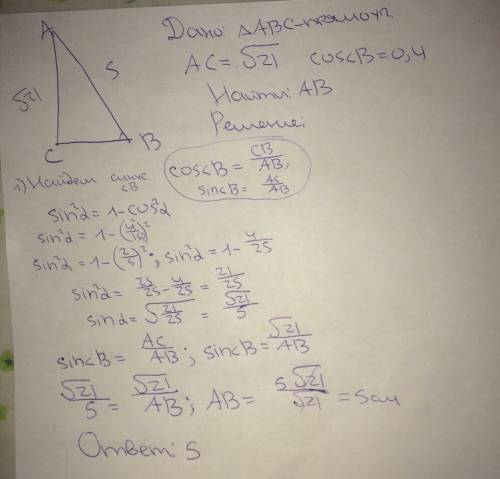 A
√21
5
C
B
Дано: △ABC-прямоуг.
AC=√21 cos∠B=0,4
Найти: AB
Решение:
1) Найдем синус ∠B
cos∠B = CB/AB;
sin∠B = AC/AB
sin²α=1-cos²α
sin²α=1-(4/10)²
sin²α=1-(2/5)²; sin²α=1-4/25
sin²α=25/25-4/25=21/25
sinα=√21/25=√21/5
sin∠B=AC/AB; sin∠B=√21/AB
√21/5=√21/AB; AB=5√21/√21=5см
Ответ: 5